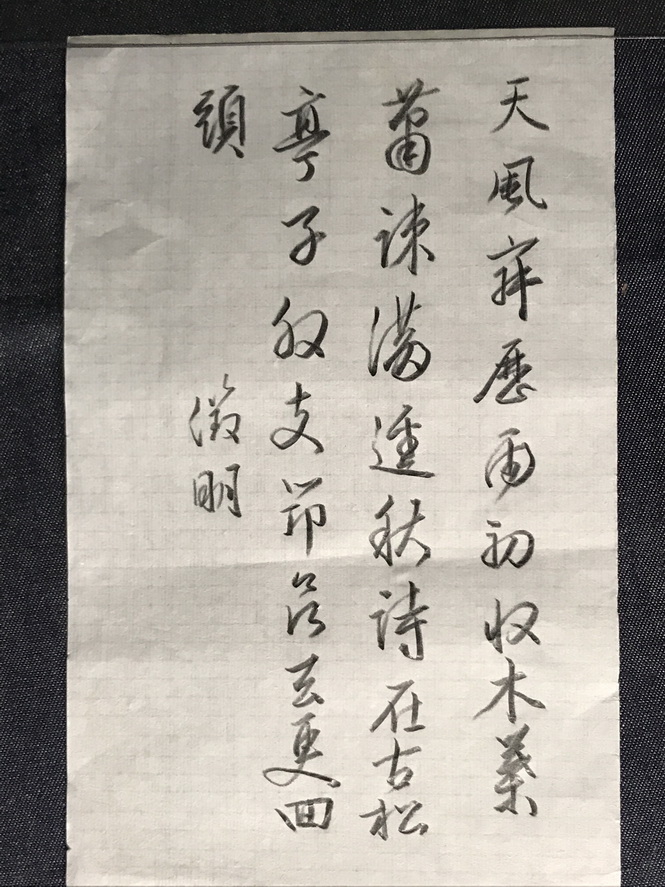 天風寂歷雨初收木葉
蕭疎滿逕秋詩在古松
亭子支笻去更回
頭
徵明